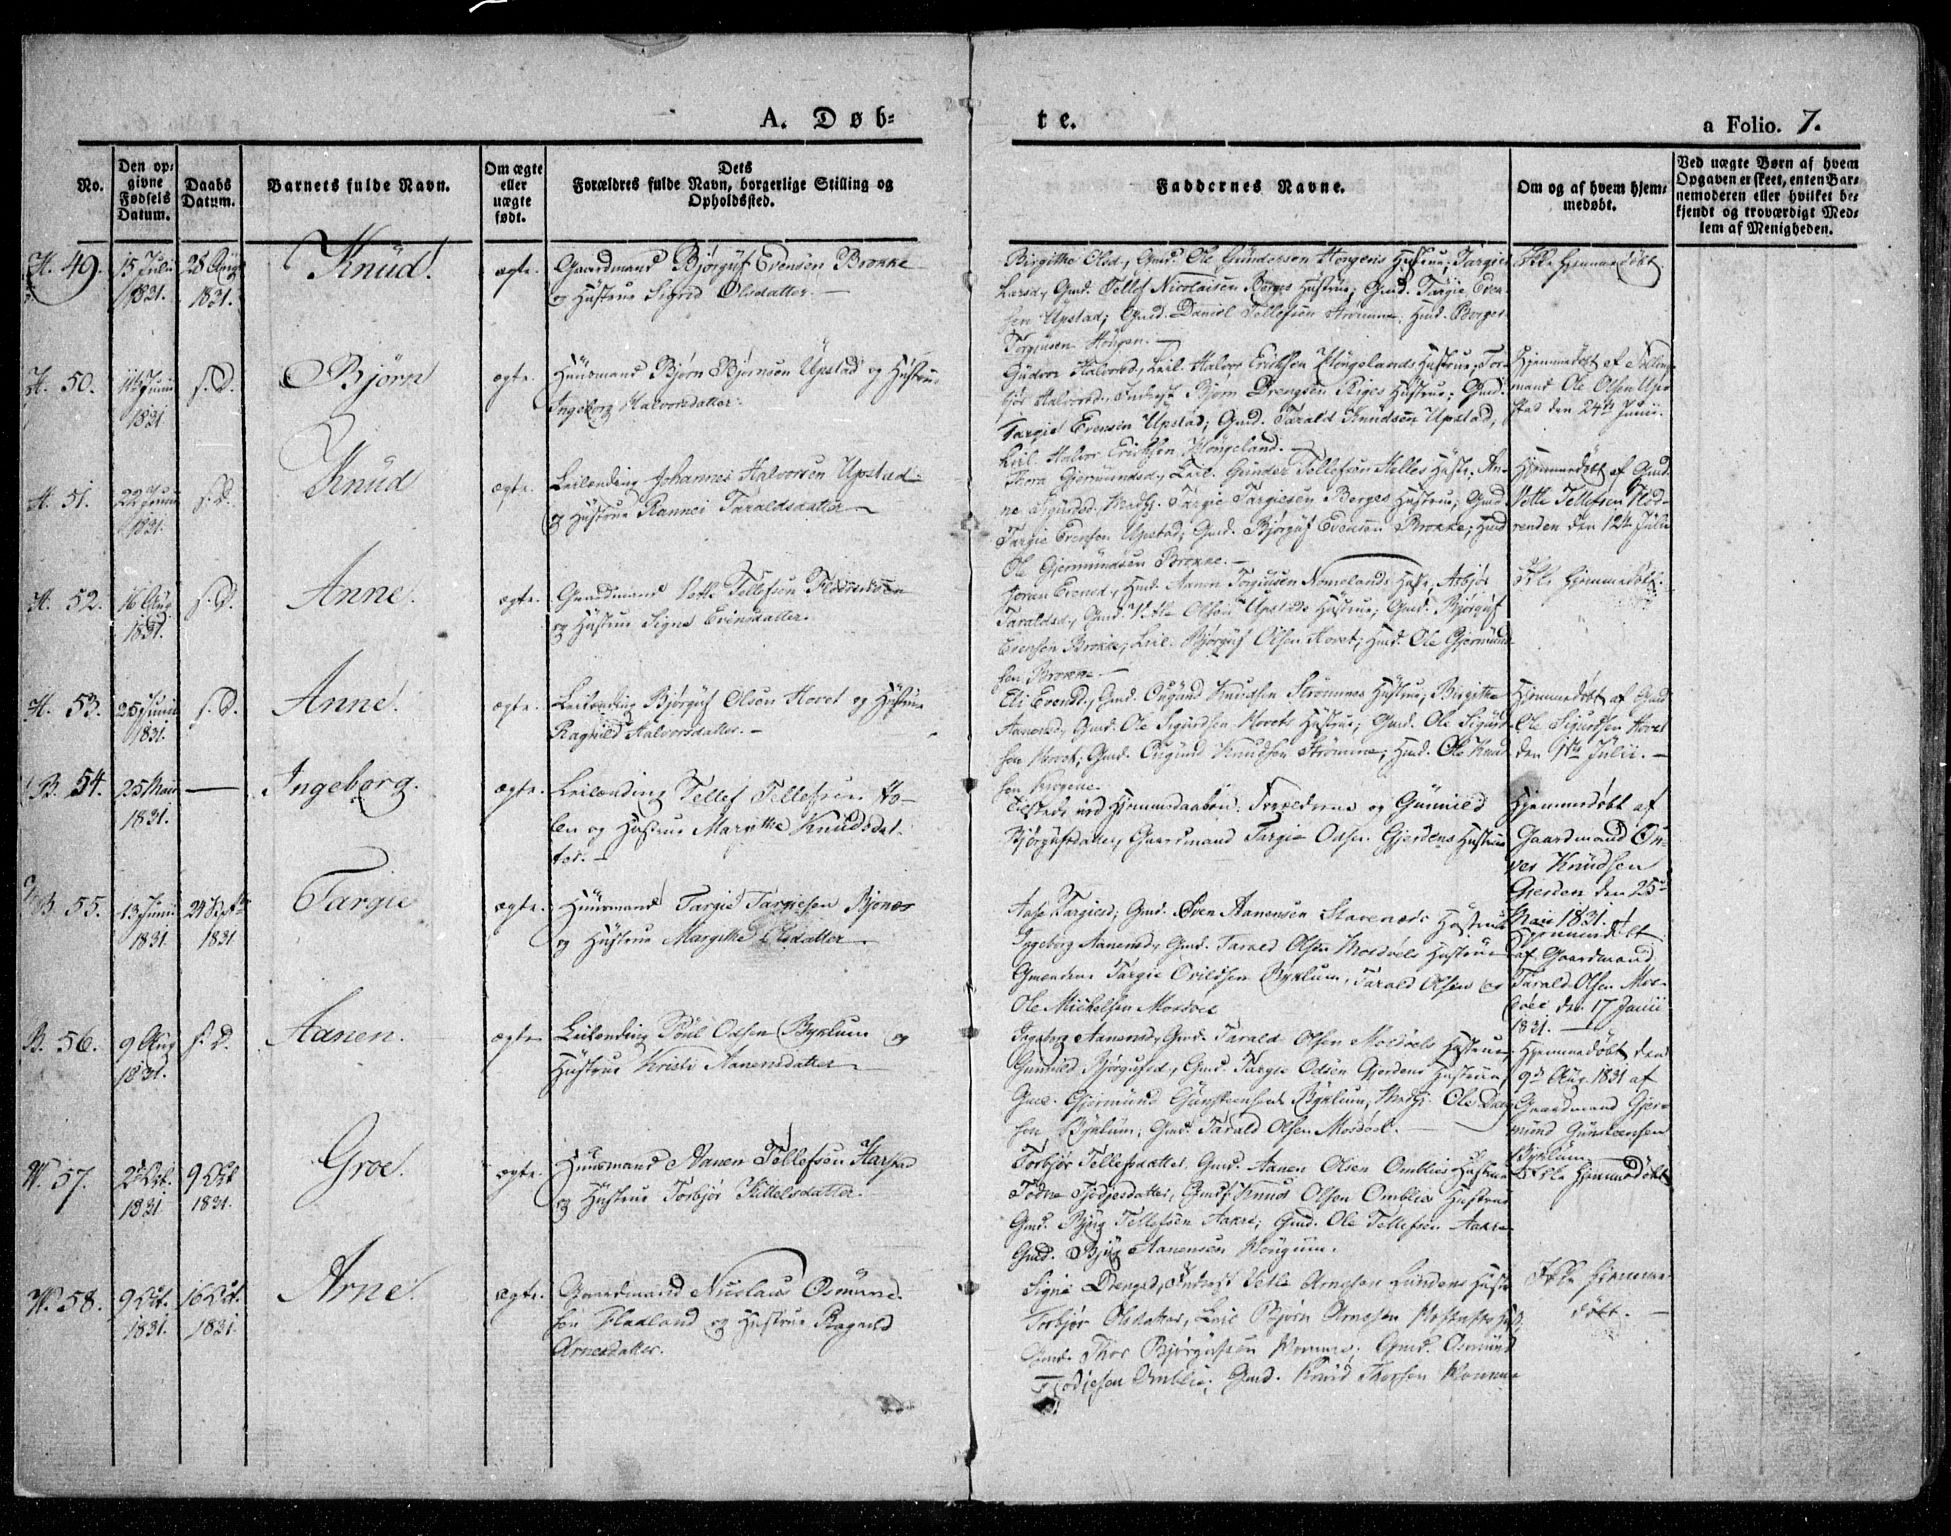 A. Døb=
te.
a Folio. 7.
No.
Den op=
givne
Fødsels
Datum.
Daabs
Datum.
Barnets fulde Navn.
Om ægte
eller
uægte
født.
Dets
Forældres fulde Navn, borgerlige Stilling og
Opholdssted.
Faddernes Navne.
Om og af hvem hjem=
medøbt.
Ved uægte Børn af hvem
Opgaven er skeet, enten Bar=
nemoderen eller hvilket be=
kjendt og troværdigt Med=
lem af Menigheden.
H. 49.
15 Juli
1831.
28 Aug
1831.
Knud.
ægte.
Gaardmand Bjørguf Evensen Brokke
og Hustrue Sigrid Olsdatter. —
Birgithe Olsd., Gmd. Ole Gundersen Hougens Hustrue; Targier
Larsd., Gmd. Tellef Nicolaisen Berges Hustrue; Gmd. Targie Even-
sen Upstad; Gmd. Daniel Tellefsen Strømme; Hmd. Borger
Torgiusen Hougen. —
Ikke hjemmedøbt.
H. 50.
11te Juni
1831
s. D.
Bjørn
ægte.
Huusmand Bjørn Bjørnsen Upstad og Hustrue
Ingeborg Halvorsdatter.
Gudvor Halvorsd., Leil. Halvor Eriksen Hougelands Hustrue; Tor-
bjør Halvorsd., Inderst Bjørn Drengsen Riges Hustrue; Gmd.
Targie Evensen Upstad; Gmd. Tarald Knudsen Upstad,
Leil. Halvor Eriksen Hougeland.
Hjemmedøbt af
mand Ole Olsen Up-
stad den 24de Junii.
H. 51.
22 Junii
1831.
s. D.
Knud
ægte.
Leilænding Johannes Halvorsen Upstad
og Hustrue Rannei Taraldsdatter
Thora Gjermundsd., Leil. Gunder Tellefsen Helles Hustr., An-
ne Sigurdsd., Targie Targiesen Berges Hustrue; Gmd.
Targie Evensen Upstad; Gmd. Bjørguf Evensen Brokke; Hmd
Ole Gjermundsen Brokke. —
Hjemmedøbt af Gmd.
Vette Tellefsen Flod-
renden den 12te Julii
H. 52.
16 Aug
1831.
s. D.
Anne.
ægte.
Gaardmand Vette Tellefsen
og Hustrue Signe Evensdatter.
Joran Evensd., Hmd. Aanen Torgiusen Nomelands Hustr., Asbjør
Taraldsd., Gmd. Ole Olsen Upstads Hustrue; Gmd. Bjørguf
Evensen Brokke; Leil. Bjørguf Olsen Hovet; Hmd. Ole Gjermund-
sen Brokke —
Ikke hjemmedøbt.
H. 53.
25 Junii
1831.
s. D.
Anne.
ægte.
Leilænding Bjørguf Olsen Hovet og Hustrue
Ragnild Halvorsdatter. —
Eli Evensd., Gmd. Ougund Knudsen Strømmes Hustrue; Birgithe
Aanensd., Gmd. Ole Sigurdsen Hovets Hustrue; Gmd. Ole Sigurd-
sen Hovet; Gmd. Ougund Knudsen Strømme; Hmd. Ole Knud
sen
Hjemmedøbt af Gmd
Ole Sigurdsen Hovet
den 9de Julii. —
B. 54.
25 Maii
1831.
—
Ingeborg.
ægte.
Leilænding Tellef Tellefsen Ho-
len og Hustrue Margithe Knudsdat-
ter. —
Tilstede ved Hjemmedaaben: Forældrene og Gunnild
Bjørgufsdatter, Gaardmand Targie Odsen Gjerdens Hustrue
Hjemmedøbt af
Gaardmand On-
ver Knudsen
Gjerden den 25de
Maii 1831.
B. 55.
13 Junii
1831.
24 Septbr
1831
Targie
ægte.
Huusmand Targie Targiesen Bjones
og Hustrue Margithe Olsdatter —
Aase Targiesd., Gmd. Sven Aanensen Stavenæs Hustrue
Ingeborg Aanensd., Gmd. Tarald Olsen Mosdøels Hustrue
Gmendene Targie Byklum, Tarald Olsen og
Ole Michelsen Mosdøel
Hjemmedøbt
af Gaardmand
Tarald Olsen Mos-
døel den 17 Junii
1831. —
B. 56.
9 Aug
1831.
s. D.
Aanen.
ægte.
Leilænding Poul Odsen Byklum og
Hustrue Kristi Aanensdatter
Ingeborg Aanensd., Gmd. Tarald Olsen Mosdøels Hustrue,
Gunnild Bjørgufsd., Gmd. Targie Odsen Gjerdens Hustrue,
Gmd. Gjermund Gunsteensen Byklum, Ole
sen Byklum; Gmd. Tarald Olsen Mosdøel. —
Hjemmedøbt den
9de Aug. 1831 af
Gaardmand Gjer-
mund Gunsteensen
Byklum —
V. 57.
2 Oct.
1831
9 Oct
1831.
Groe.
ægte.
Huusmand Aanen Tellefsen Harstad
og Hustrue Torbjør Kittelsdatter.
Torbjør Tellefsdatter, Gmd. Aanen Olsen Omblies Hustrue
Todne datter, Gmd. Knud Olsen Omblies Hustrue
Gmd. Bjug Tellefsen Aakre; Gmd. Ole Tellefsen Aakre
Gmd. Bjug Aanensen Hougum.
Ikke hjemmedøbt
V. 58.
9 Oct.
1831.
16 Oct.
1831.
Arne.
ægte.
Gaardmand Nicolaus Osmund-
sen Fladland og Hustrue Ragnild
Arnesdatter.
Signe Drengsd., Inderst Vetle Arnesen Lundens Hustr
Torbjør Olsdatter, Leil Bjørn Arnesen
Gmd. Thor Bjørgufsen; Gmd. Osmund
Omblie; Gmd. Knud Thorsen
Ikke hjemme-
døbt. —